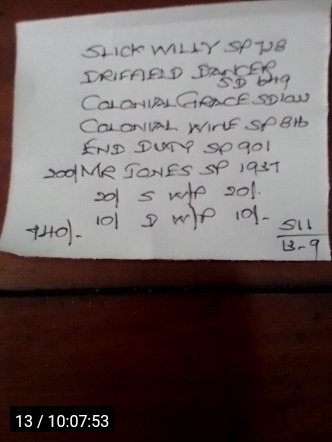 SLICK WILLY SP 728
DRIFFIELD DANCER
SD 619
COLONIAL GRACE SD 1022
COLONIAL WIFE SP 816
END DUTY SP 901
200/ MR JONES SP 1937
20/ S W/P 20/.
10/ D W/P 10/-
740/-
511
13-9
13 / 10:07:53